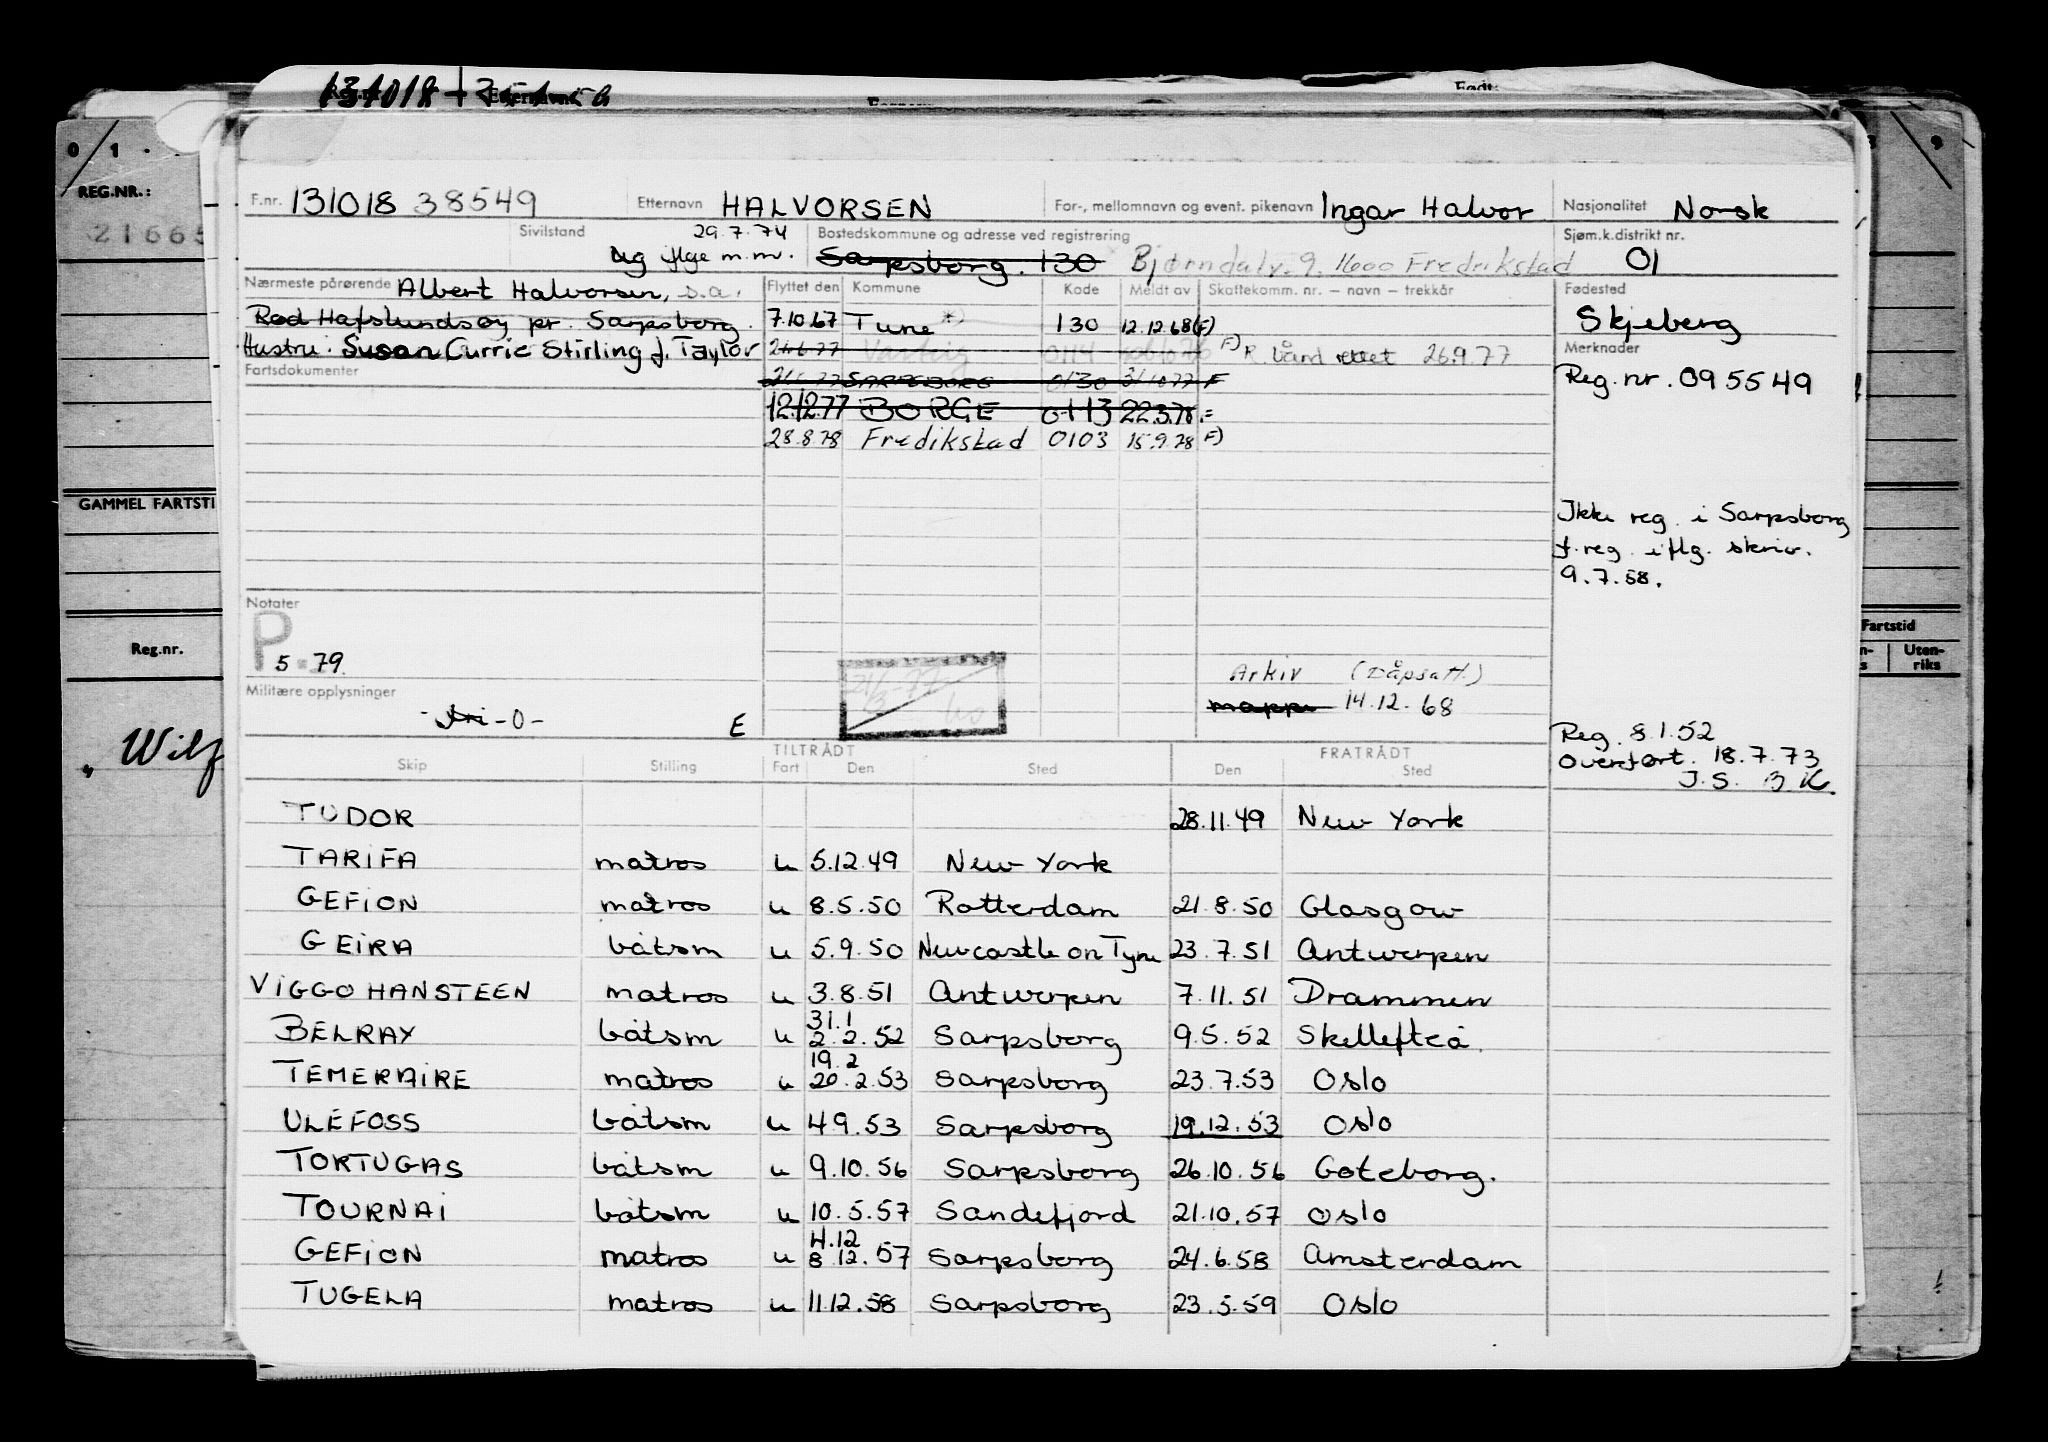 Født:
0 1
REG.NR.:
21665
GAMMEL FARTSTI
Reg.nr.
" Wilf
Fartstid
Uten-
riks
F.nr. 131018 38549 Etternavn HALVORSEN For-, mellomnavn og event. pikenavn Ingar Halvor Nasjonalitet Norsk
Sivilstand 29.7.74 Bostedskommune og adresse ved registrering Sjøm.k.distrikt nr.
Ug iflge m.m. Sarpsborg. 130 Bjørndalv. 9. 1600 Fredrikstad 01
Nærmeste pårørende Albert Halvorsen, s.a. Flyttet den Kommune Kode Meldt av Skattekomm. nr. – navn – trekkår Fødested
Rød Hafslundsøy pr. Sarpsborg. 7.10.67 Tune *) 130 12.12.68 (F) Skjeberg
Hustru: Susan Curric Stirling f. Taylor 24.6.77 Varteig 0114 F) R Vård rettet 26.9.77 Merknader
Fartsdokumenter SARPSBORG 0130 31/10 77 F Reg.nr. 095549
12.12.77 BORGE 0113 22.3.78
28.8.78 Fredikstad 0103 15.9.78 F)
Ikke reg. i Sarpsborg
f.reg. iflg. skriv.
9.7.58.
Notater
P
5-79.
Arkiv (Dåpsatt.)
Militære opplysninger
-0- E
mappe 14.12.68
Reg. 8.1.52
Overført. 18.7.73
J.S. B K.
TILTRÅDT FRATRÅDT
Skip Stilling Fart Den Sted Den Sted
TUDOR 28.11.49 New York
TARIFA matros u 5.12.49 New York
GEFION matros u 8.5.50 Rotterdam 21.8.50 Glasgow
GEIRA båtsm u 5.9.50 Newcastle on Tyne 23.7.51 Antwerpen
VIGGO HANSTEEN matros u 3.8.51 Antwerpen 7.11.51 Drammen
31.1
BELRAY båtsm u 2.2.52 Sarpsborg 9.5.52 Skellefteå.
19.2
TEMERAIRE matros u 20.2.53 Sarpsborg 23.7.53 Oslo
ULEFOSS båtsm u 4.9.53 Sarpsborg 19.12.53 Oslo
TORTUGAS båtsm u 9.10.56 Sarpsborg 26.10.56 Goteborg.
TOURNAI båtsm u 10.5.57 Sandefjord 21.10.57 Oslo
4.12
GEFION matros u 8 12.57 Sarpsborg 24.6.58 Amsterdam
TUGELA matros u 11.12.58 Sarpsborg 23.5.59 Oslo